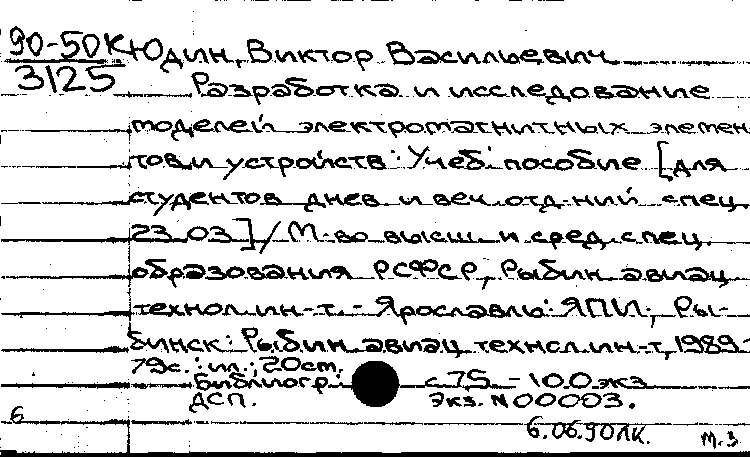 90-50К Юдин, Виктор Васильевич
3125
Разработка и исследование
моделей электромагнитных элемен
тов и устройств : Учеб. пособие [для
студентов днев и веч. отд-ний спец.
23.03] / М-во высш. и сред. спец.
образования РСФСР, Рыбин. авиац
технол. ин-т. - Ярославль : ЯПИ ; Ры-
бинск : Рыбин. авиац технол. ин-т, 1989. -
79с. : ил. ; 20cm.
Библиогр. с 75 - 100 экз
ДСП. Экз. N 00003.
6
6.06.90 ЛК. М.З